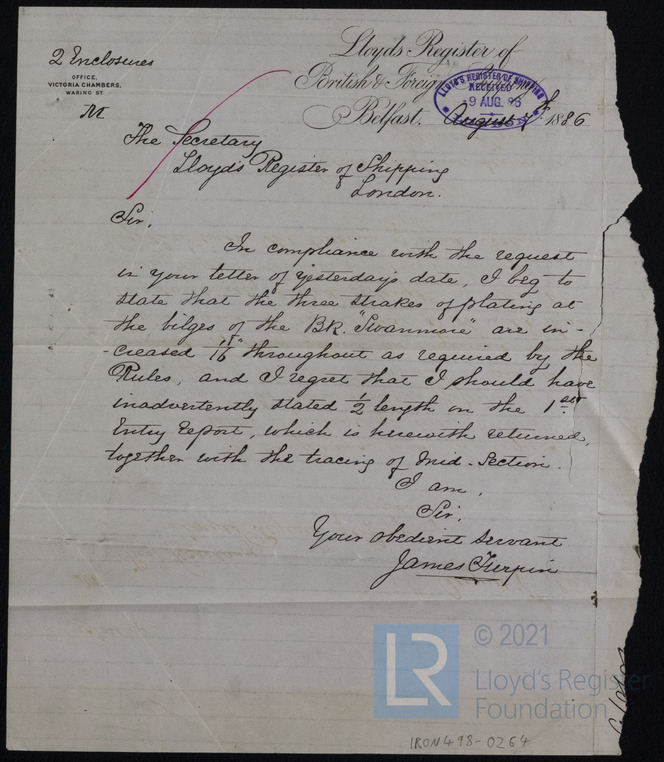 2 Enclosures
OFFICE,
VICTORIA CHAMBERS,
WARING ST.
M
Lloyds Register of
British & Foreign
Belfast, August 7th 1886
LLOYD'S REGISTER OF SHIPPING
RECEIVED
9 AUG. 86
The Secretary
Lloyd's Register of Shipping
London.
Sir,
In compliance with the request
in your letter of yesterday's date, I beg to
state that the three strakes of plating at
the bilges of the BK. "Swanmore" are in-
-creased 1/16" throughout as required by the
Rules, and I regret that I should have
inadvertently stated 1/2 length on the 1st
Entry report, which is herewith returned,
together with the tracing of Mid-Section.
I am,
Sir,
Your obedient servant
James Turpin
LR
© 2021
Lloyd's Register
Foundation
IRON498-0264